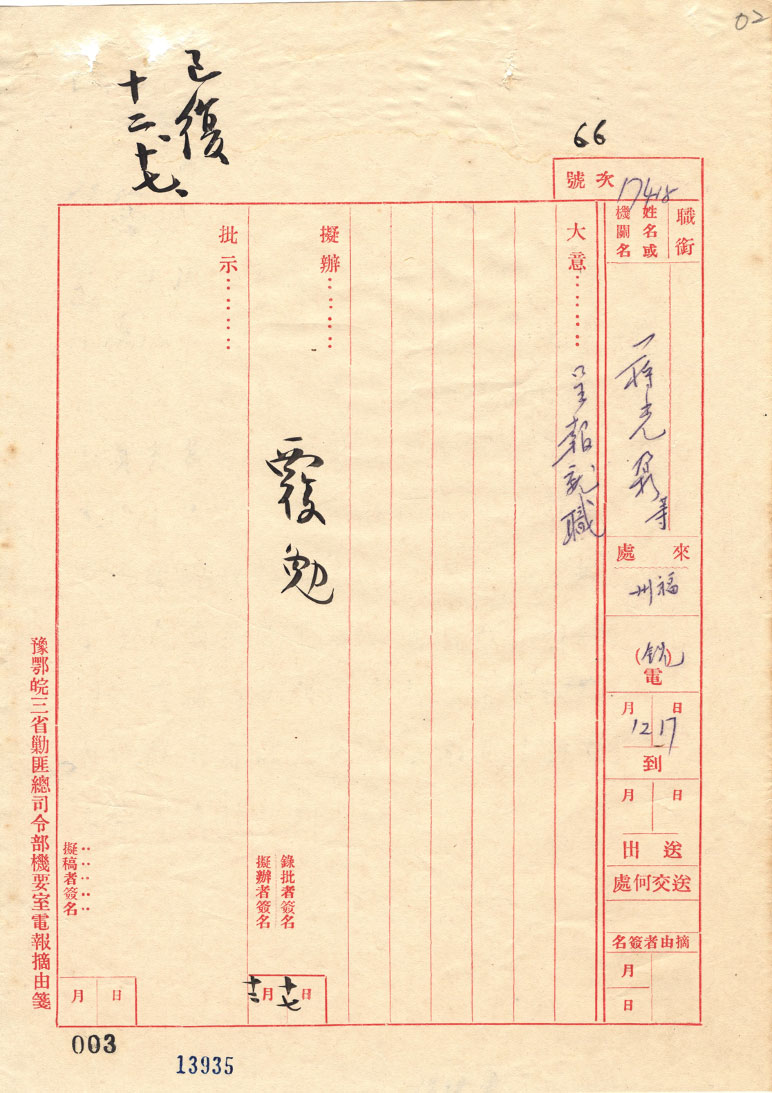 02
66
已復
十二、十七、
號次
17418
職銜
姓名或
機關名
蔣光鼐等
來處
福州
(銑)電
月 日
12 17
到
月 日
送出
送交何處
摘由者簽名
月
日
大意………
呈報就職
擬辦………
覆勉
錄批者簽名
擬辦者簽名
十二月十七日
批示………
擬稿者簽名
月 日
豫鄂皖三省勦匪總司令部機要室電報摘由箋
003
13935